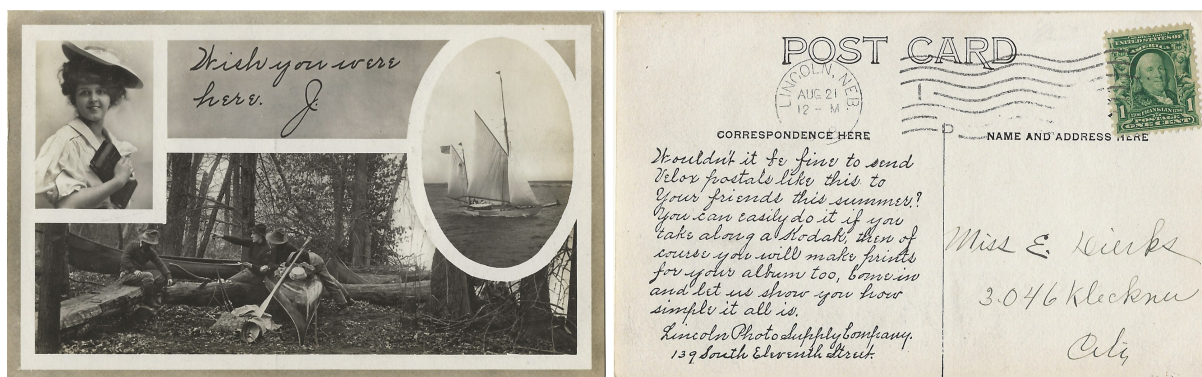 Wish you were
here. J.
POST CARD
LINCOLN, NEB.
AUG 21
12 - M
UNITED STATES OF
AMERICA
1 FRANKLIN 1
POSTAGE
ONE CENT
CORRESPONDENCE HERE
NAME AND ADDRESS HERE
Wouldn't it be fine to send
Velox postals like this to
your friends this summer?
You can easily do it if you
take along a Kodak, then of
course you will make prints
for your album too, Come in
and let us show you how
simple it all is.
Lincoln Photo Supply Company.
139 South Eleventh Street.
Miss E. Dierks
3046 Kleckner
City